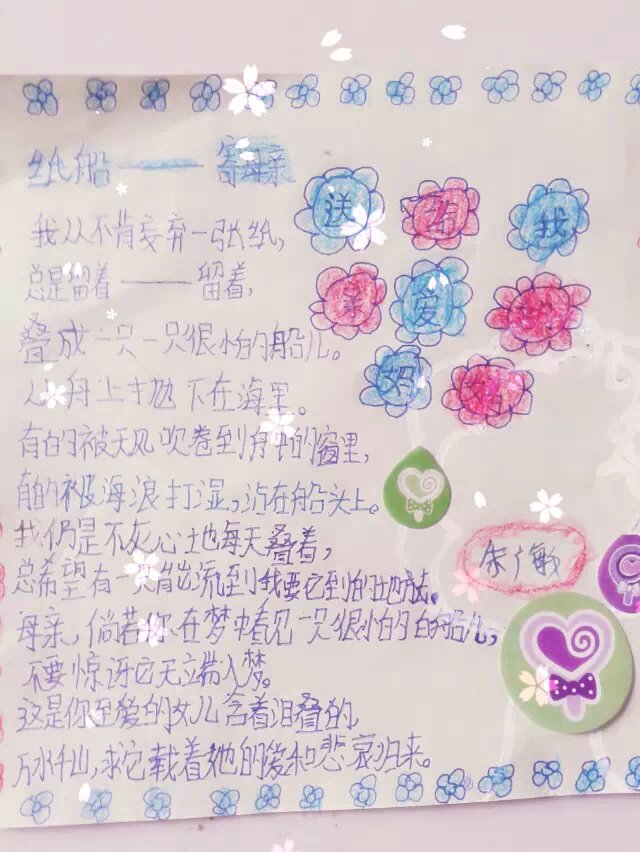 纸船——寄母亲
我从不肯妄弃一张纸,
总是留着——留着,
叠成一只一只很小的船儿。
从舟上抛下在海里。
有的被天风吹卷到舟中的窗里,
有的被海浪打湿,沾在船头上。
我仍是不灰心地每天叠着,
总希望有一只能流到我要它到的地方。
母亲,倘若你在梦中看见一只很小的白船儿,
不要惊讶它无端入梦。
这是你至爱的女儿含着泪叠的,
万水千山,求它载着她的爱和悲哀归来。
送给我
亲爱的
妈妈
朱广敏